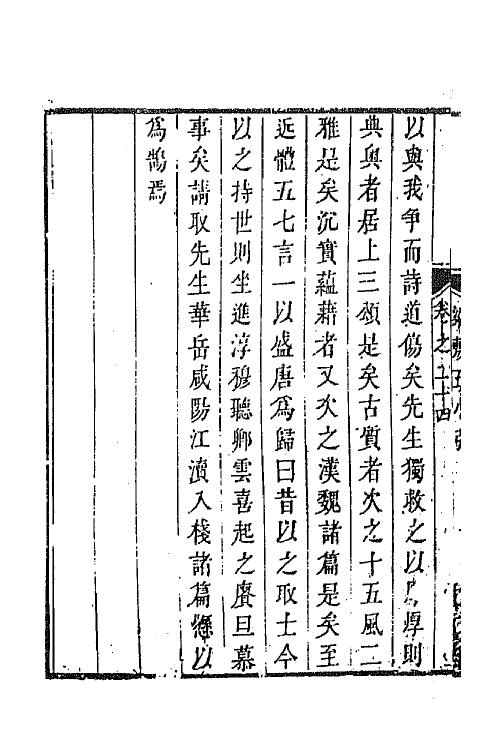 卷之二十四
以與我争而詩道傷矣先生獨救之以厚則
典與者居上三頌是矣古質者次之十五風二
雅是矣沉實蘊藉者又次之漢魏諸篇是矣至
近體五七言一以盛唐為歸曰昔以之取士今
以之持世則坐進淳穆聽卿雲喜起之賡旦暮
事矣請取先生華岳咸陽江瀆入棧諸篇懸以
為鵠焉